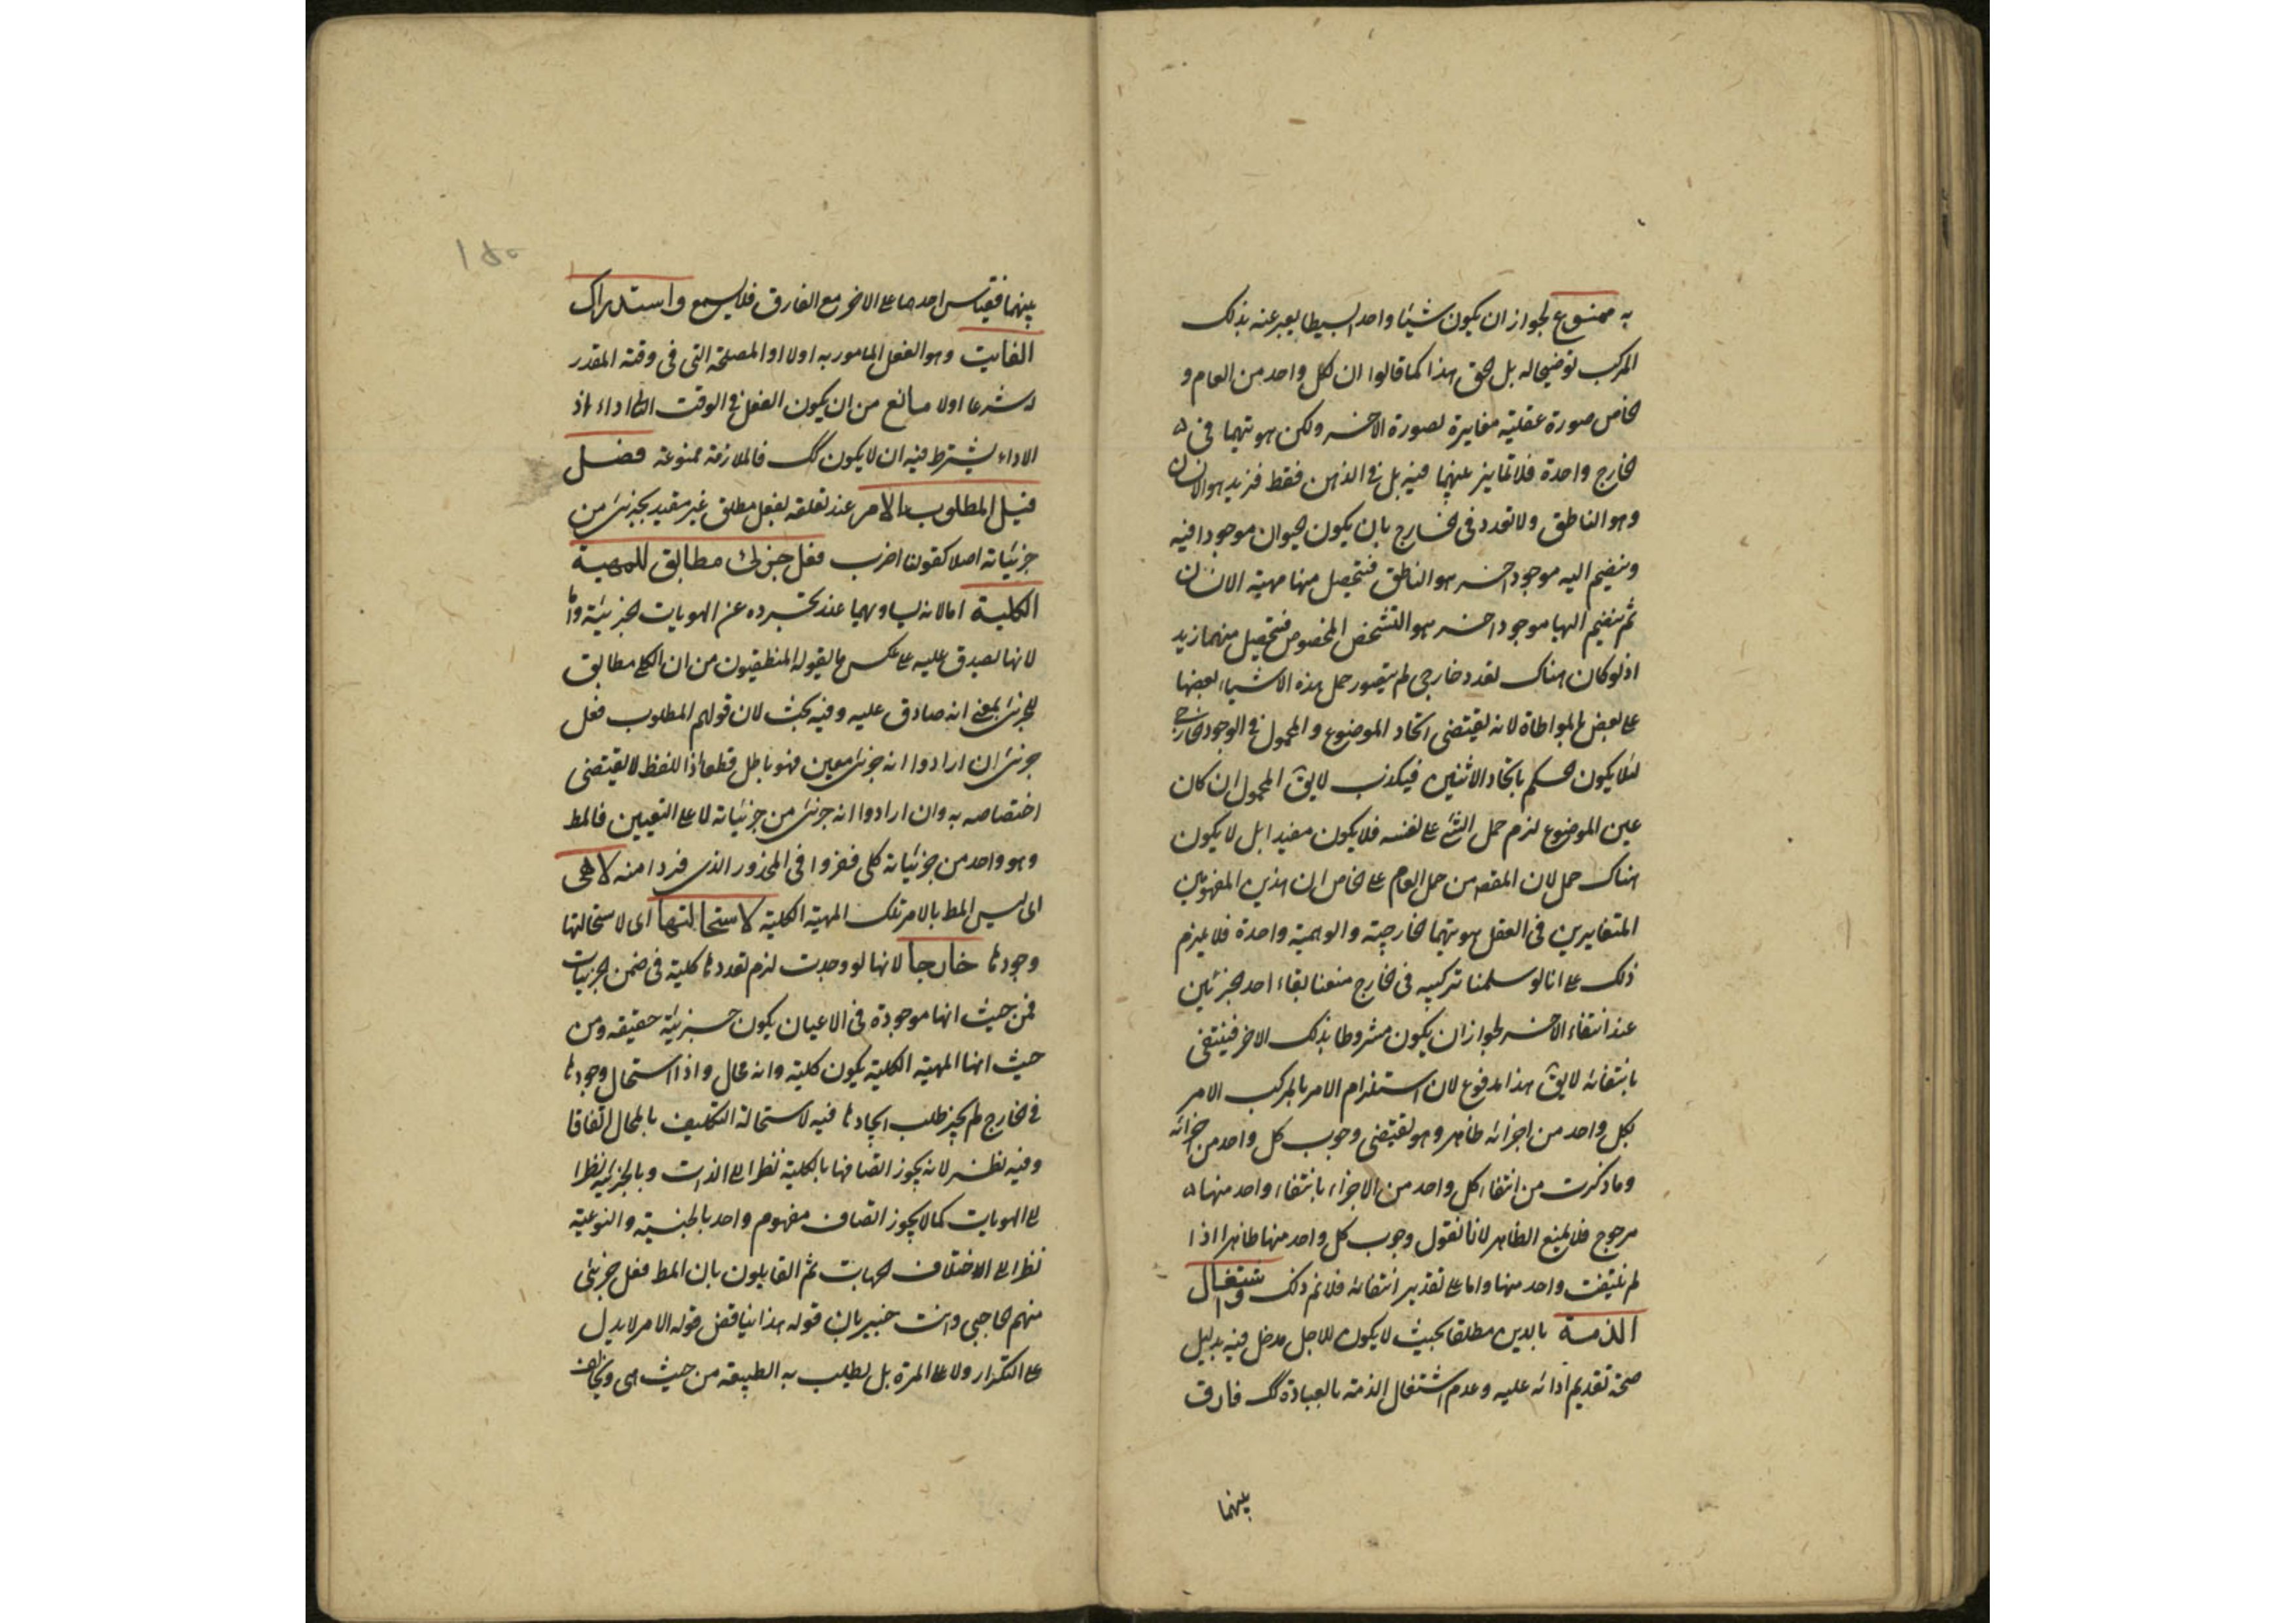 به ممنوع لجواز ان يكون شيئا واحدا بسيطا يعبر عنه بذلك
المركب توضيحا له بل الحق هذا كما قالوا ان كل واحد من العام و
الخاص صورة عقلية مغايرة لصورة الاخر ولكن هويتهما فى
الخارج واحدة فلا تمايز بينهما فيه بل فى الذهن فقط فزيد هو الانسان
وهو الناطق ولا تعدد فى الخارج بان يكون الحيوان موجودا فيه
وينضم اليه موجود اخر هو الناطق فتحصل منها مهية الانسان
ثم ينضم اليها موجود اخر هو التشخص المخصوص فتحصل منهما زيد
اذ لو كان هناك تعدد خارجى لم يتصور حمل هذه الاشياء بعضها
على بعض بالمواطاة لانه يقتضى اتحاد الموضوع والمحمول فى الوجود الخارجى
لئلا يكون الحكم باتحاد الاثنين فيكذب لا يق المحمول ان كان
عين الموضوع لزم حمل الشئ على نفسه فلا يكون مفيدا بل لا يكون
هناك حمل لان المقصد من حمل العام على الخاص ان هذين المفهومين
المتغايرين فى العقل هويتهما الخارجية والوهمية واحدة فلا يلزم
ذلك على انا لو سلمنا تركيبه فى الخارج منعنا بقاء احد الجزئين
عند انتفاء الاخر لجواز ان يكون مشروطا بذلك الاخر فينتفى
بانتفائه لا يق هذا مدفوع لان استلزام الامر بالمركب الامر
بكل واحد من اجزائه ظاهر وهو يقتضى وجوب كل واحد من اجزائه
وما ذكرت من انتفاء كل واحد من الاجزاء بانتفاء واحد منها
مرجوح فلا يمنع الظاهر لانا نقول وجوب كل واحد منها ظاهرا اذا
لم ينتف واحد منها واما على تقدير انتفائه فلا نم ذلك واشتغال
الذمة بالدين مطلقا بحيث لا يكون للاجل مدخل فيه بدليل
صحة تقديم ادائه عليه وعدم اشتغال الذمة بالعبادة كك فارق
بينهما
١٥٠
بينهما فقياس احدهما على الاخر مع الفارق فلا يسمع واستدراك
الفايت وهو الفعل المامور به اولا او المصلحة التى فى وقته المقدر
له شرعا اولا مانع من ان يكون الفعل فى الوقت الثانى اداء اذ
الاداء يشترط فيه ان لا يكون كك فالملازمة ممنوعة فصل
قيل المطلوب بالامر عند تعلقه بفعل مطلق غير مقيد بجزئى من
جزئياته اصلا كقولنا اضرب فعل جزئى مطابق للمهية
الكلية اما لانه يساويهما عند تجرده عن الهويات الجزئية واما
لانها يصدق عليه على عكس ما يقوله المنطقيون من ان الكلى مطابق
للجزئى بمعنى انه صادق عليه وفيه بحث لان قولهم المطلوب فعل
جزئى ان ارادوا انه جزئى معين فهو باطل قطعا اذ اللفظ لا يقتضى
اختصاصه به وان ارادوا انه جزئى من جزئياته لا على التعيين فالمط
وهو واحد من جزئياته كلى ففروا فى المحذور الذى فردا منه لا هى
اى ليس المط بالامر تلك المهية الكلية لاستحالتها اى لاستحالتها
وجودها خارجا لانها لو وجدت لزم تعددها كلية فى ضمن الجزئيات
فمن حيث انها موجودة فى الاعيان يكون جزئية حقيقه ومن
حيث انها المهية الكلية يكون كلية وانه محال واذا استحال وجودها
فى الخارج لم يجز طلب ايجادها فيه لاستحالة التكليف بالمحال اتفاقا
وفيه نظر لانه يجوز اتصافها بالكلية نظرا الى الذات وبالجزئية نظرا
الى الهويات كما لا يجوز اتصاف مفهوم واحد بالجنسية والنوعية
نظرا الى الاختلاف الجهات ثم القايلون بان المط فعل جزئى
منهم الحاجبى وانت خبير بان قوله هذا يناقض قوله الامر لا يدل
على التكرار ولا على المرة بل يطلب به الطبيعة من حيث هى ويخالف